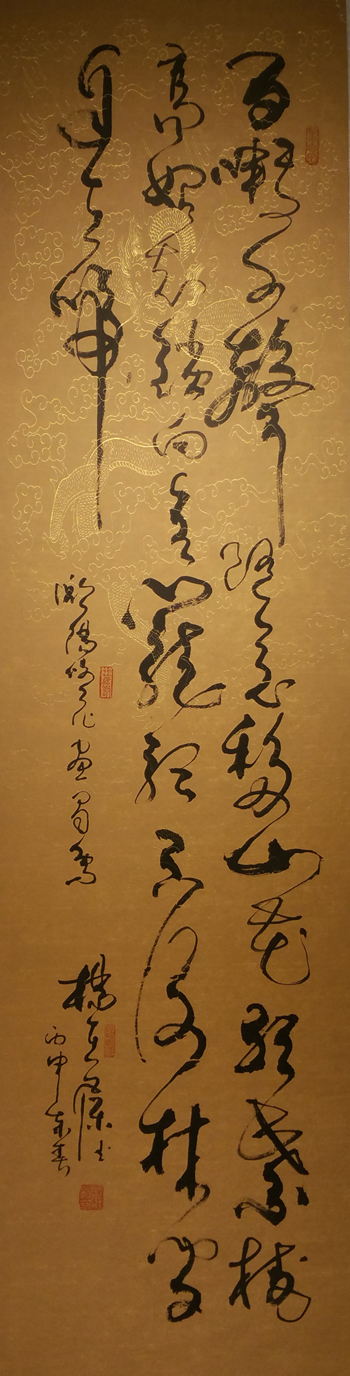 百囀千聲隨意移山花紅紫樹
高低始知鎖向金籠聽不及林間
自在啼
歐陽修之作畫眉鳥
楊 書
丙申 春